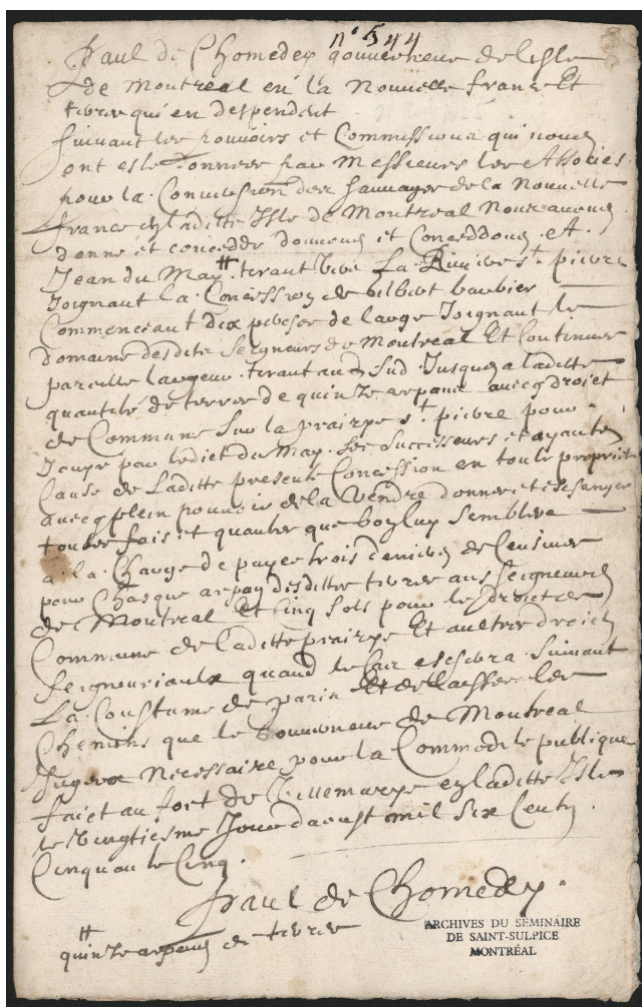 n° 544
Paul de Chomedey gouverneur de lisle
de Montreal en la Nouvelle france Et
terres qui en despendent
Suivant les pouvoirs et Commissions qui nous
ont este donnees par Messieurs les Associes
pour la Conversion des Sauvages de la Nouvelle
france en laditte Isle de Montreal Nous avons
donne et concedde donnons et Conceddons A
Jean du May # tirant vers La Riviere St. pierre
Joignant la Concession de Gilbert barbier
Commenceant dix perches de large Joignant le
domaine desdits Seigneurs de Montreal Et Continuer
pareille largeur tirant au Sud Jusques a laditte
quantité de terres de quinze arpans avecq droict
de Commune Sur la prairye St. pierre pour
Jouyr par ledict du May Ses Successeurs et ayants
Cause de Laditte presente Concession en toute propriete
avecq plein pouvoir de la Vendre donner et eschanger
toutes fois et quantes que bon luy Semblera
a la Charge de payer trois deniers de Censives
pour Chasque arpan desdittes terres aus Seigneurs
de Montreal Et Cinq Sols pour le droict de
Commune de laditte prairye Et aultres droicts
Seigneuriaulx quand le Cas escherra Suivant
La Coustume de paris Et de laisser les
Chemins que le Gouverneur de Montreal
Jugera Necessaire pour la Commodité publique
faict au fort de Villemarye en laditte Isle
le Vingtiesme Jour daoust mil Six Cents
Cinquante Cinq.
Paul de Chomedey.
#
quinze arpans de terres
ARCHIVES DU SEMINAIRE
DE SAINT-SULPICE
MONTRÉAL